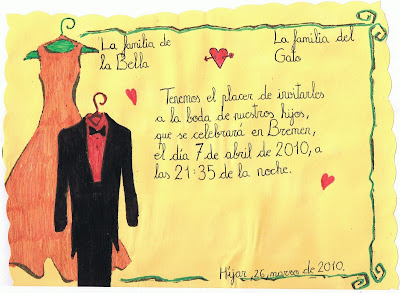 La familia de
la Bella
La familia del
Galo
Tenemos el placer de invitarles
a la boda de nuestros hijos,
que se celebrará en Bremen,
el día 7 de abril de 2010, a
las 21:35 de la noche.
Híjar, 26, marzo de 2010.